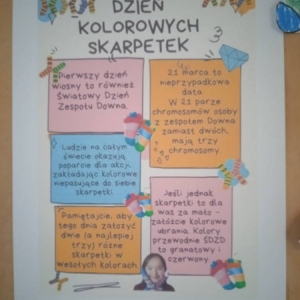 DZIEŃ
KOLOROWYCH
SKARPETEK
Pierwszy dzień
wiosny to również
Światowy Dzień
Zespołu Downa.
21 marca to
nieprzypadkowa
data.
W 21 parze
chromosomów osoby
z zespołem Downa
zamiast dwóch,
mają trzy
chromosomy.
Ludzie na całym
świecie okazują
poparcie dla akcji,
zakładając kolorowe
niepasujące do siebie
skarpetki.
Jeśli jednak
skarpetki to dla
was za mało -
załóżcie kolorowe
ubrania. Kolory
przewodnie ŚDZD
to granatowy i
czerwony.
Pamiętajcie, aby
tego dnia założyć
dwie (a najlepiej
trzy) różne
skarpetki w
wesołych kolorach.